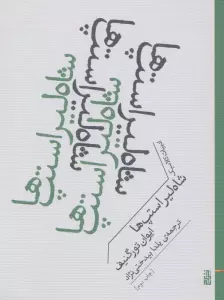 شاه‌لیر استپ‌ها
شاه‌لیر استپ‌ها
شاه‌لیر استپ‌ها
شاه‌لیر استپ‌ها
شاه‌لیر استپ‌ها
ایوان تورگنیف
ترجمه‌ی یلدا بیدختی‌نژاد
(چاپ دوم)